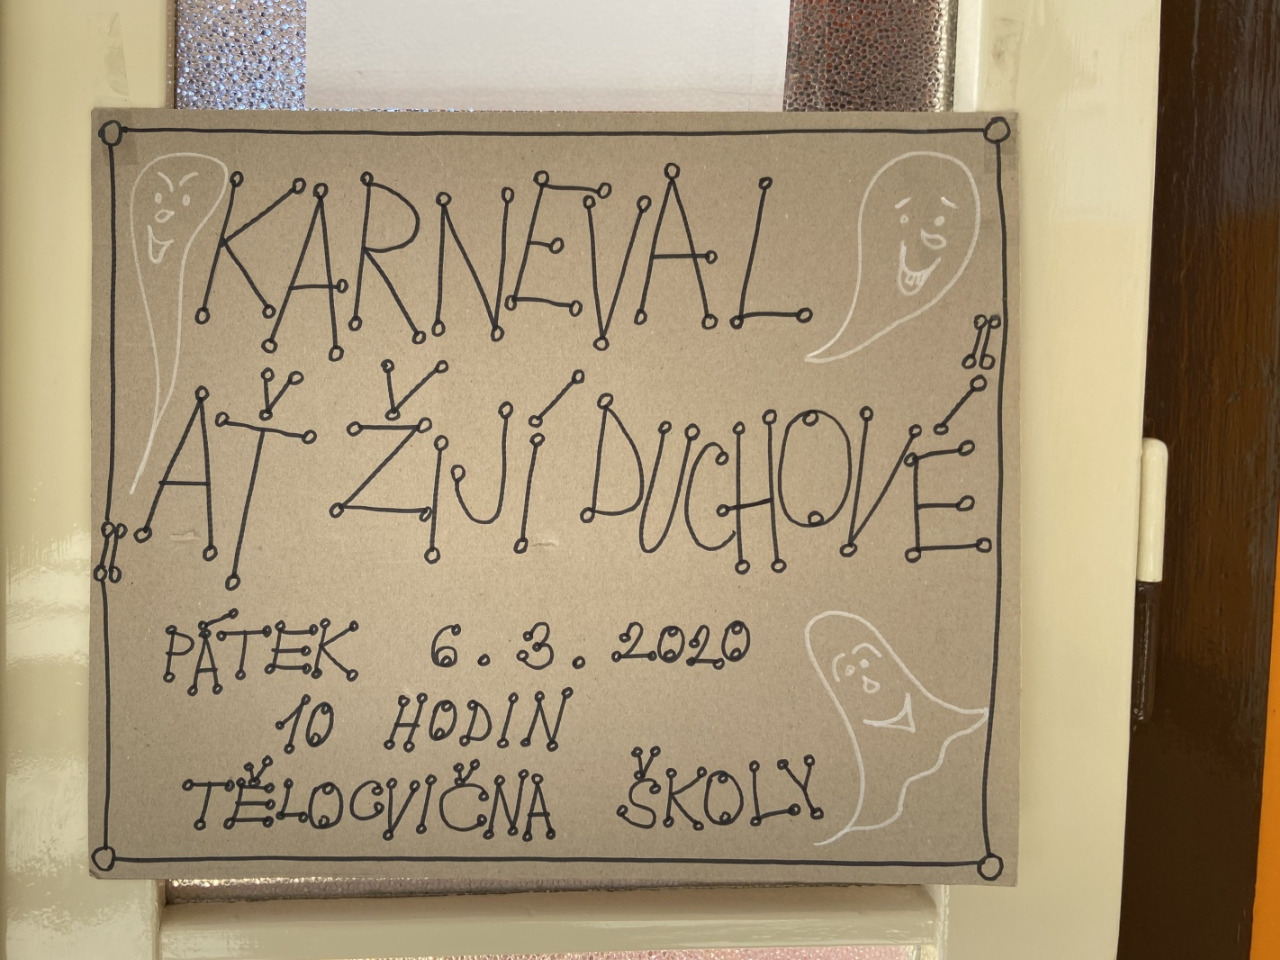 KARNEVAL
„AŤ ŽIJÍ DUCHOVÉ“
PÁTEK 6. 3. 2020
10 HODIN
TĚLOCVIČNA ŠKOLY